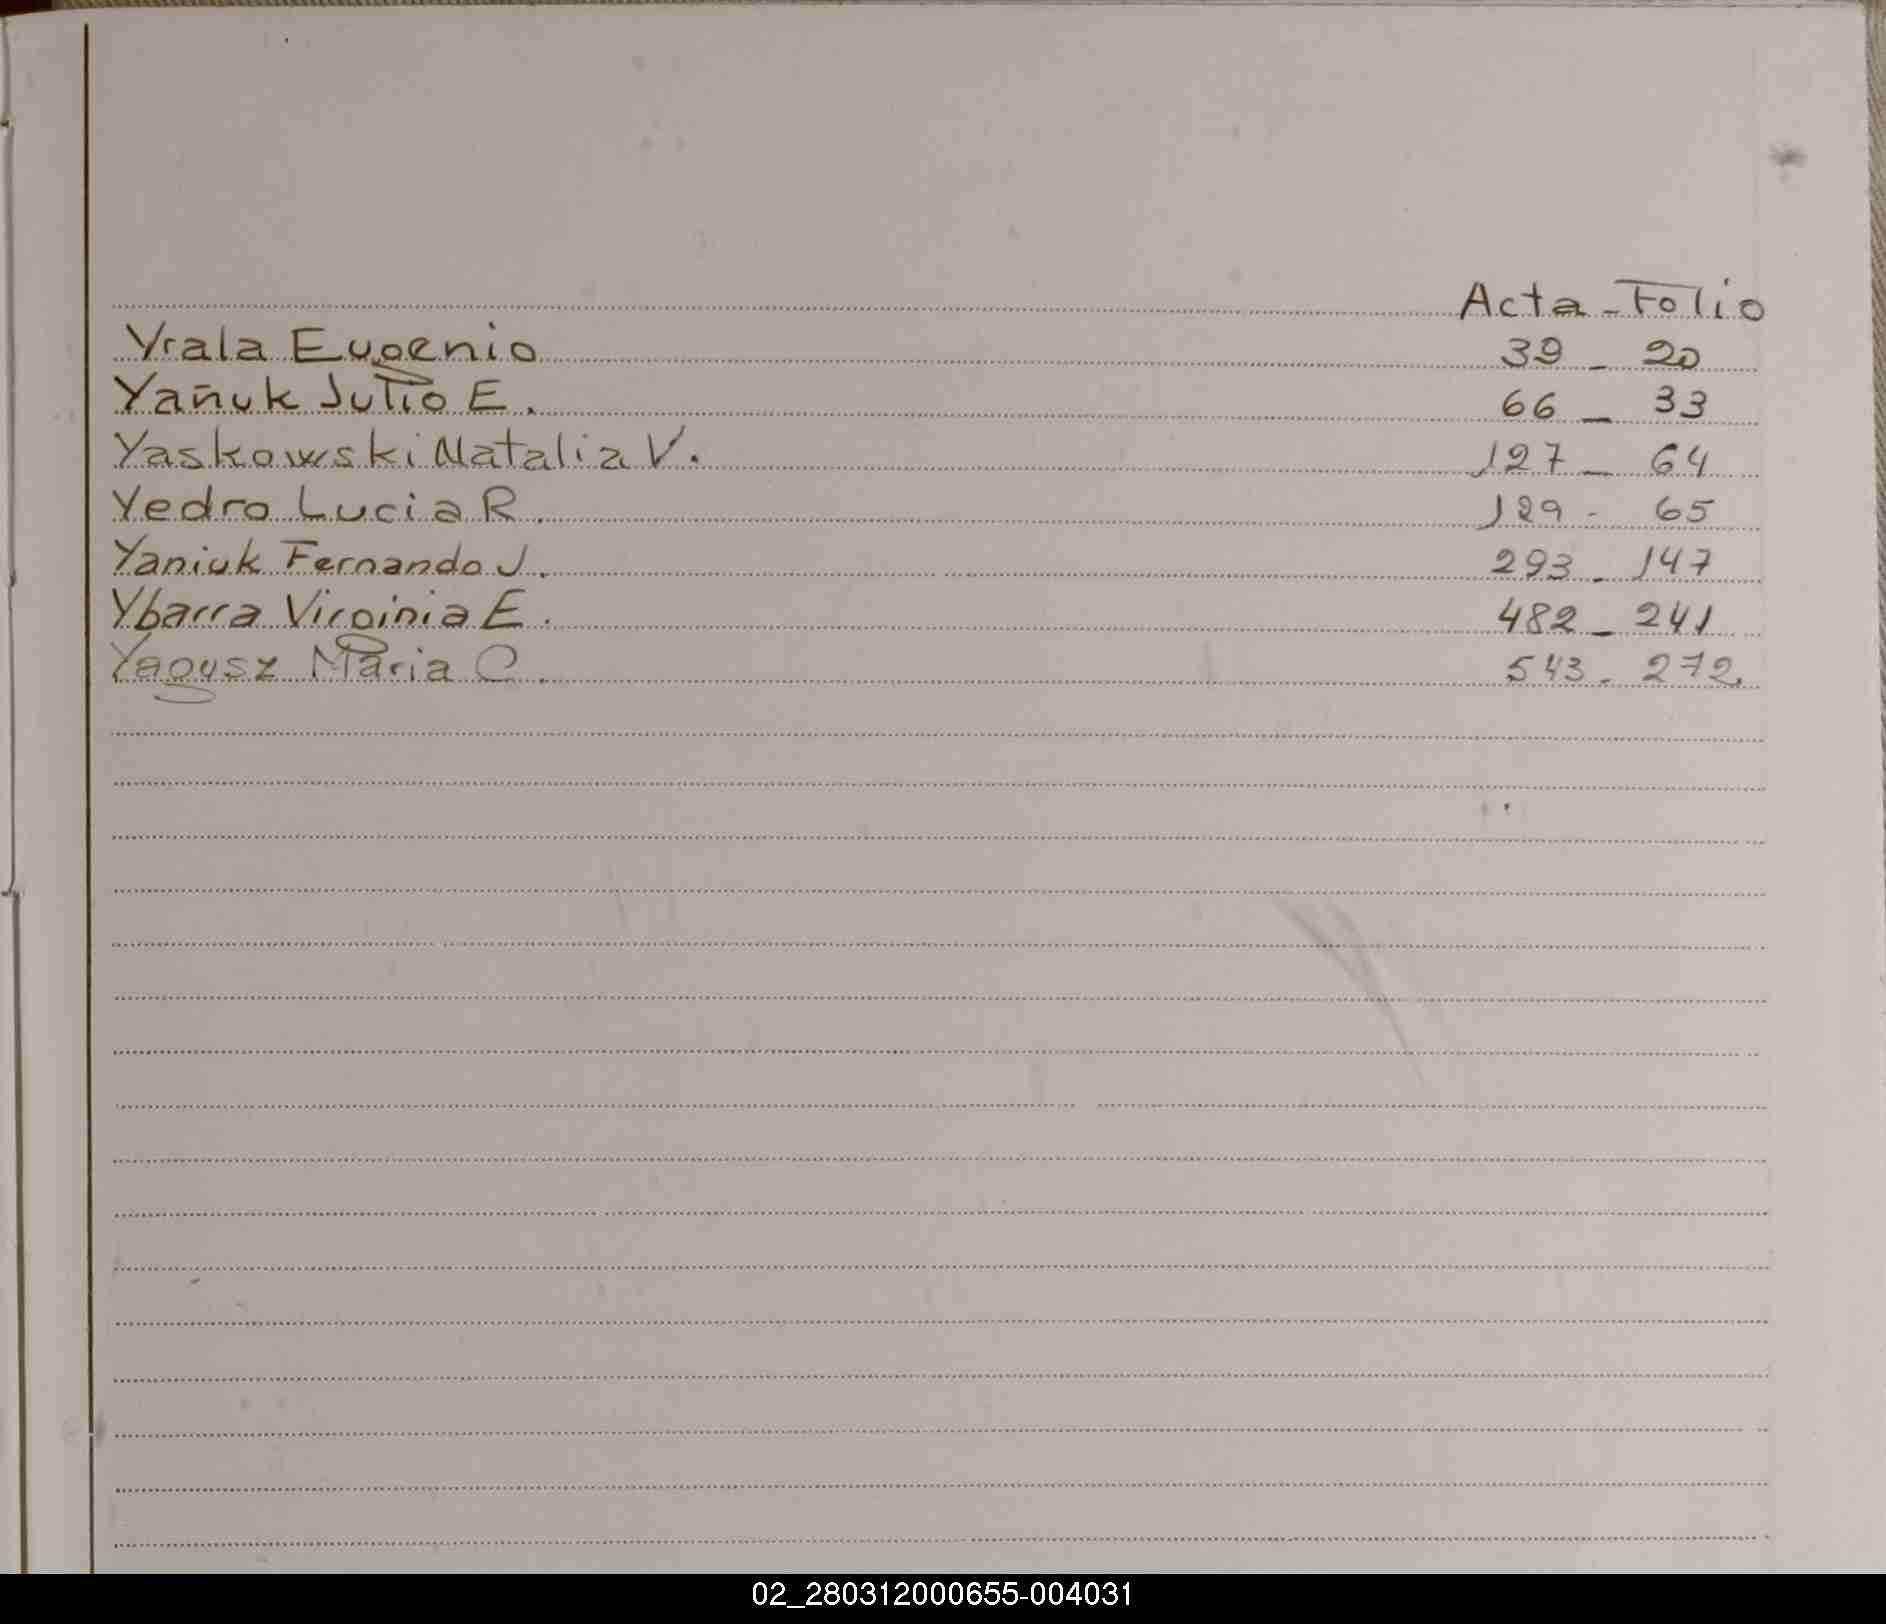 Acta - Folio
Yrala Eugenio 39 - 20
Yañuk Julio E. 66 - 33
Yaskowski Natalia V. 127 - 64
Yedro Lucia R. 129 - 65
Yaniuk Fernando J. 293 - 147
Ybarra Virginia E. 482 - 241
Yagusz Maria C. 543 - 272.
02_280312000655-004031